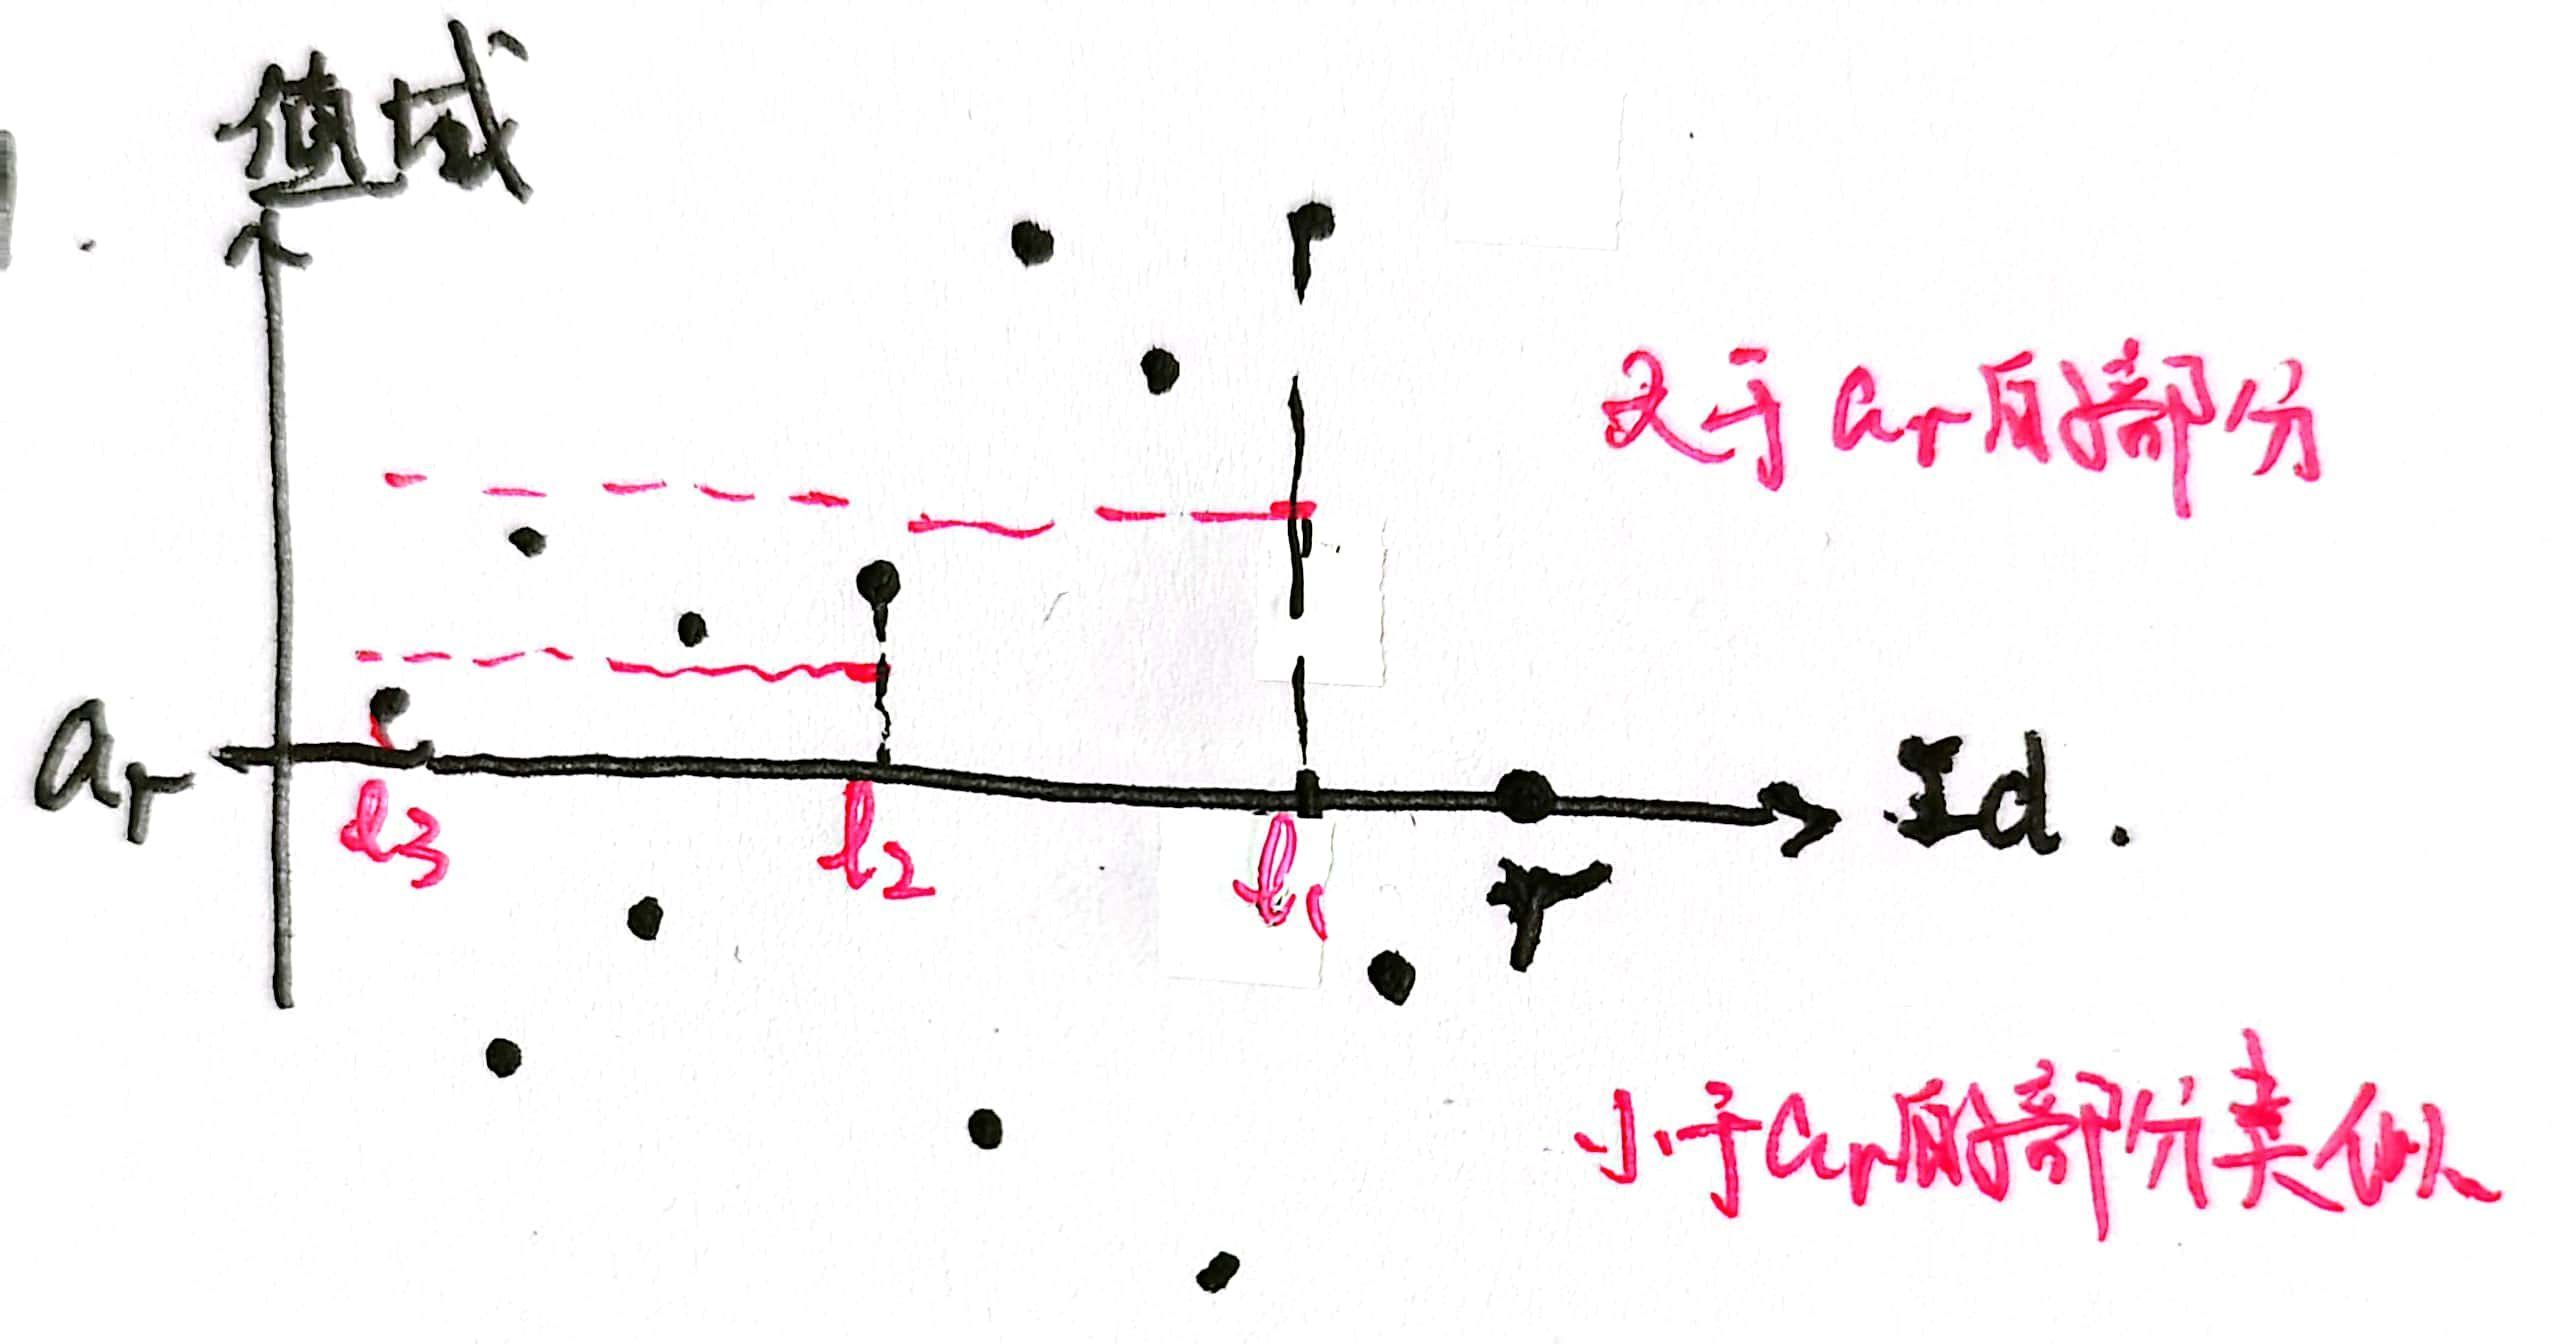 值域
大于 ar的部分
ar
Id.
l3
l2
l1
r
小于ar的部分类似